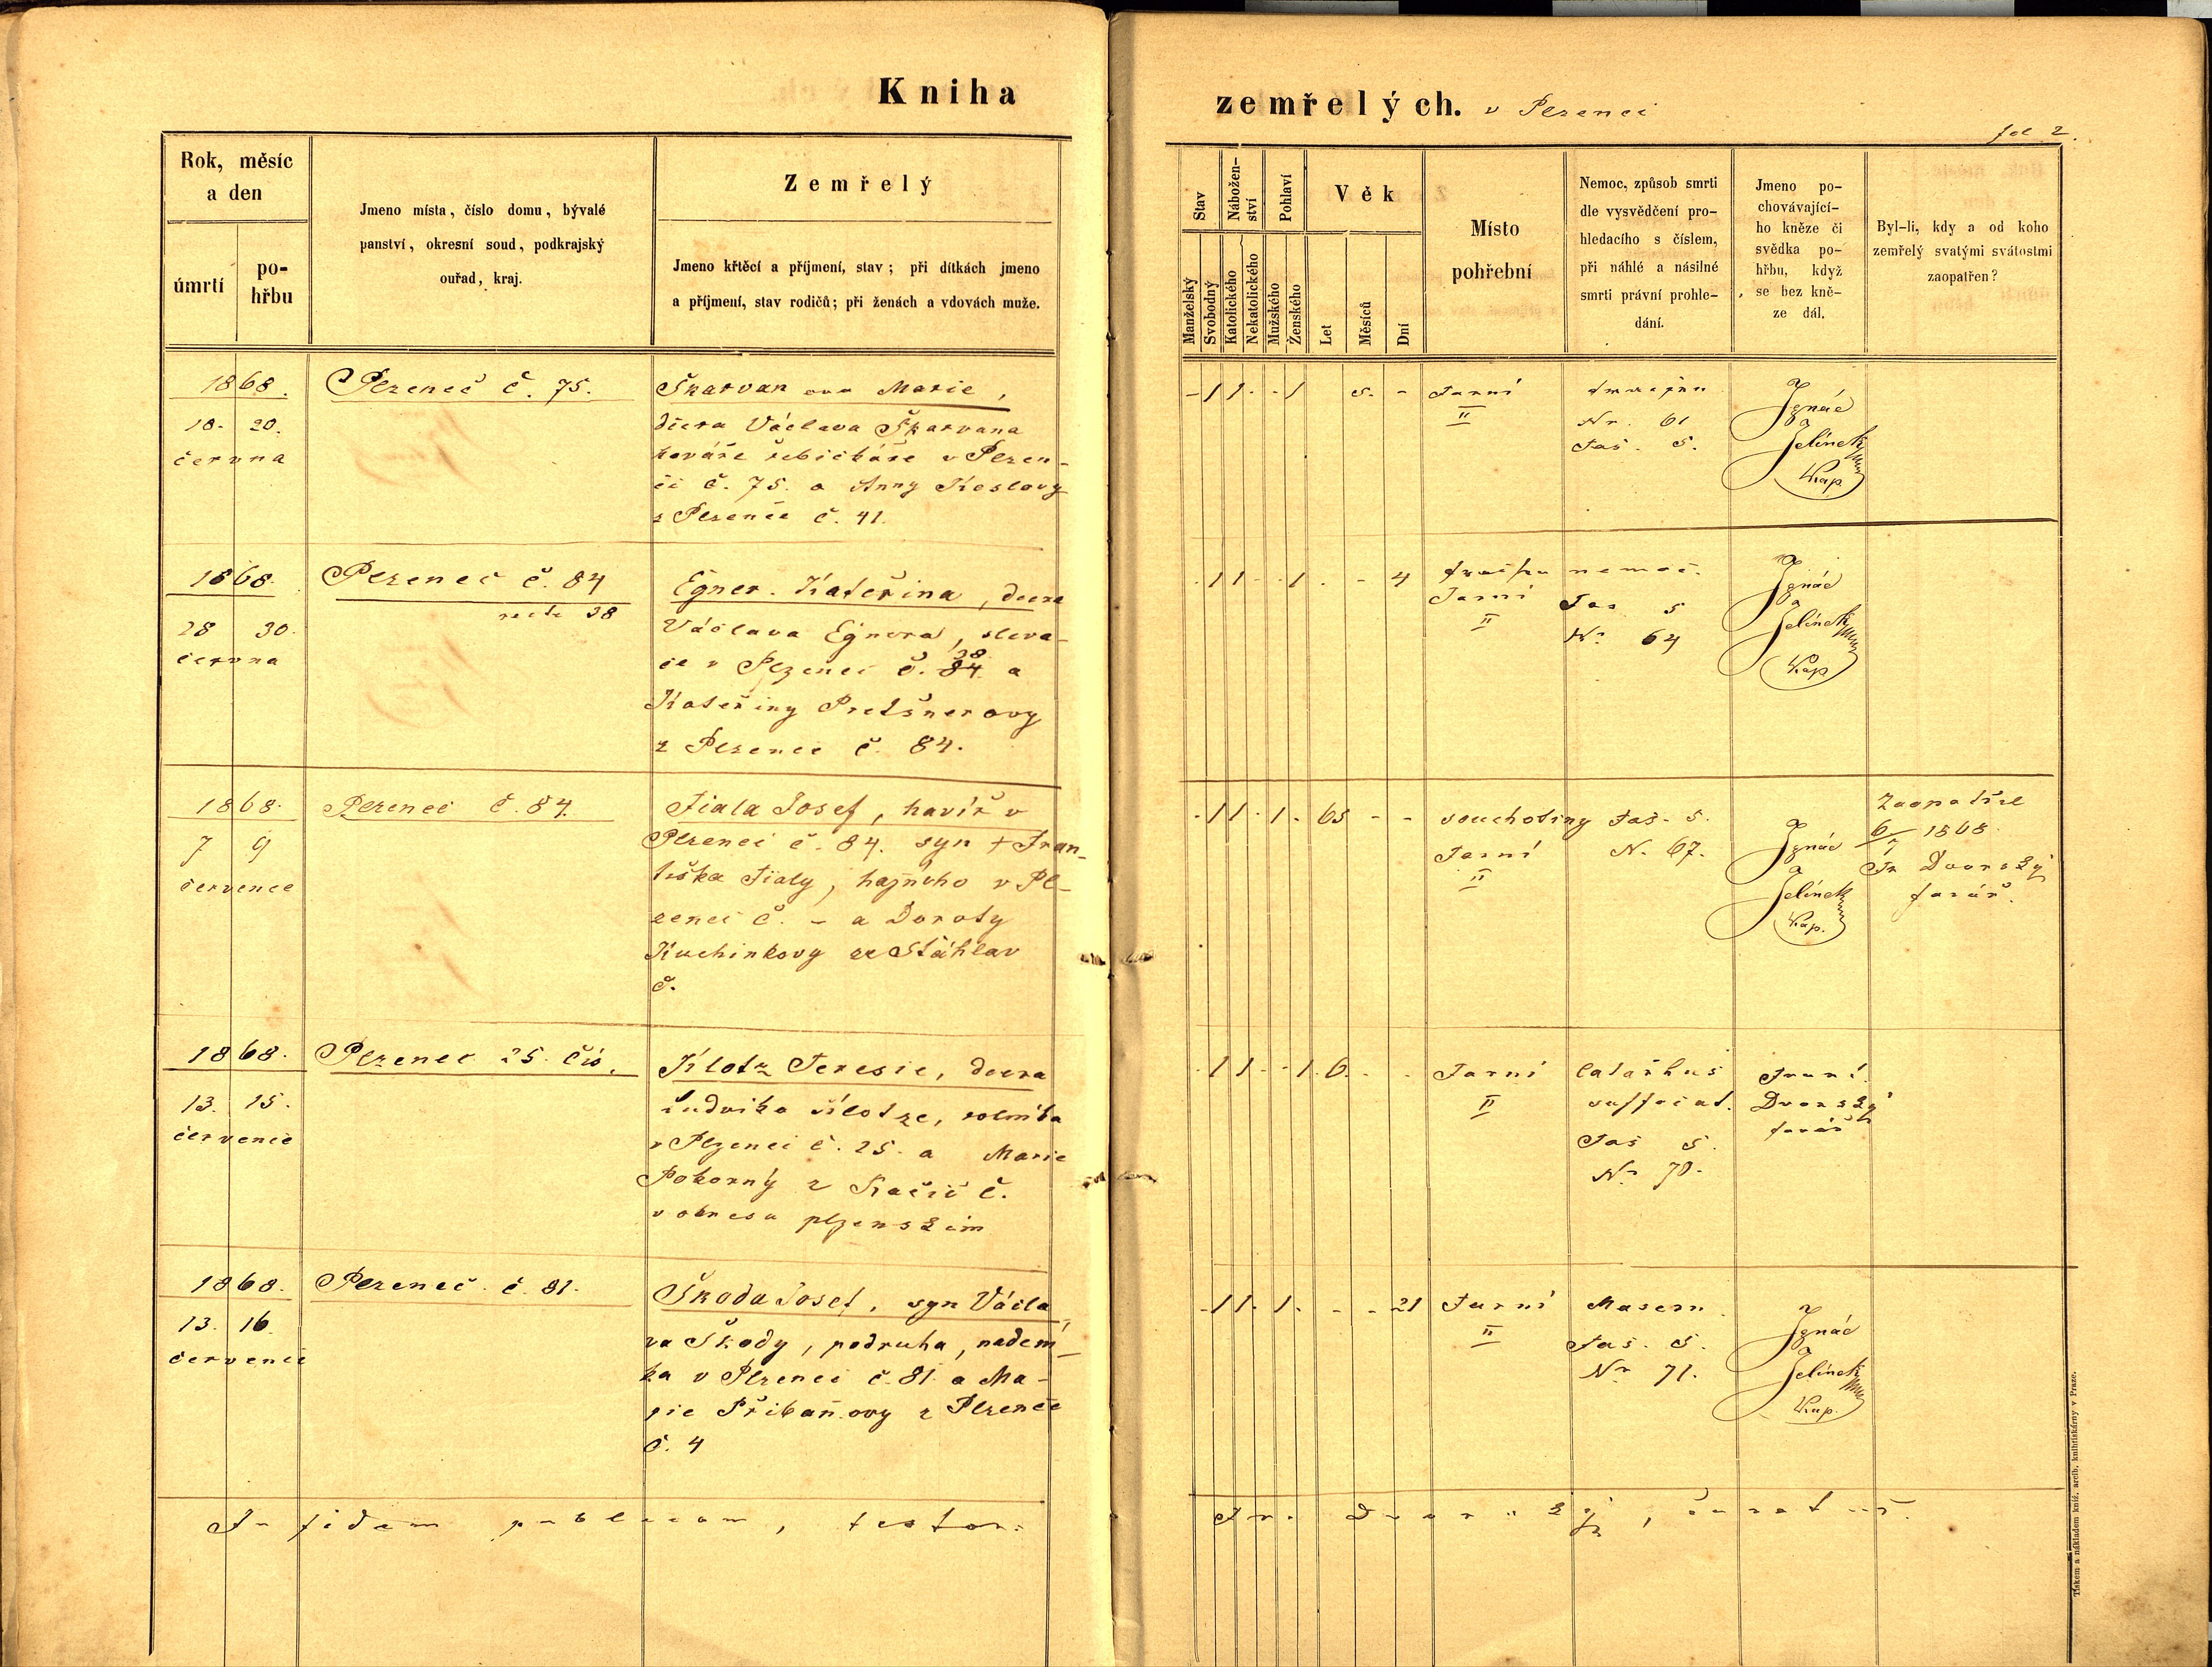 Kniha
zemřelých. v Plzenci
fol 2.
Rok, měsíc
a den
úmrtí
po-
hřbu
Jmeno místa, číslo domu, bývalé
panství, okresní soud, podkrajský
ouřad, kraj.
Zemřelý
Jmeno křtěcí a příjmení, stav; při dítkách jmeno
a příjmení, stav rodičů; při ženách a vdovách muže.
Stav
Manželský
Svobodný
Nábožen-
ství
Katolického
Nekatolického
Pohlaví
Mužského
Ženského
Věk
Let
Měsíců
Dní
Místo
pohřební
Nemoc, způsob smrti
dle vysvědčení pro-
hledacího s číslem,
při náhlé a násilné
smrti právní prohle-
dání.
Jmeno po-
chovávající-
ho kněze či
svědka po-
hřbu, když
se bez kně-
ze dál.
Byl-li, kdy a od koho
zemřelý svatými svátostmi
zaopatřen?
1868.
18. 20.
června
Plzenec č. 75.
Škarvan Marie,
dcera Václava Škarvana
kováře řebíčkáře v Plzen-
ci č. 75. a Anny
z Plzence č. 41.
- 1 1 - - 1 5. -
Farní
II
Nr. 61
Faš. 5.
Ignác
Jelínek
Kap.
1868.
28 30.
června
Plzenec č. 84
recte 38
Egner Kateřina, dcera
Václava Egnera,
v Plzenci č. 84. 38. a
Kateřiny Pretšnerovy
z Plzence č. 84.
- 1 1 - - 1 - - 4
nemoc.
Farní
II
Faš 5
Nr 64
Ignác
Jelínek
Kap
1868.
7 9
července
Plzenec č. 84.
Fiala Josef, havíř v
Plzenci č. 84. syn † Fran-
tiška Fialy, hajného v Pl-
zenci č. - a Doroty
Kuchinkovy ze Šťáhlav
č.
- 1 1 - 1 - 65 - -
souchotiny Faš. 5.
Farní
II
N. 67.
Ignác
Jelínek
Kap.
Zaopatřil
6/7 1868.
Fr Dvorský
farář.
1868.
13. 15.
července
Plzenec 25. čís.
Klotz Teresie, dcera
Ludvíka Klotze, rolníka
v Plzenci č. 25. a Marie
Pokorný z č.
v okresu plzenském
- 1 1 - - 1 6. - -
Farní
II
Catarhus
suffocat.
Faš 5.
Nr 70.
Franc.
Dvorský
farář
1868.
13. 16.
července
Plzenec č. 81.
Škoda Josef, syn Václa-
va Škody, podruha, nádení-
ka v Plzenci č. 81 a Ma-
rie Přibáňovy z Plzence
č. 4
- 1 1 - 1 - - - 21
Farní
II
Masern
Faš. 5.
Nr 71.
Ignác
Jelínek
Kap.
In fidem publicam, testor:
Fr. Dvorský,
Tiskem a nákladem kníž. arcib. knihtiskárny v Praze.